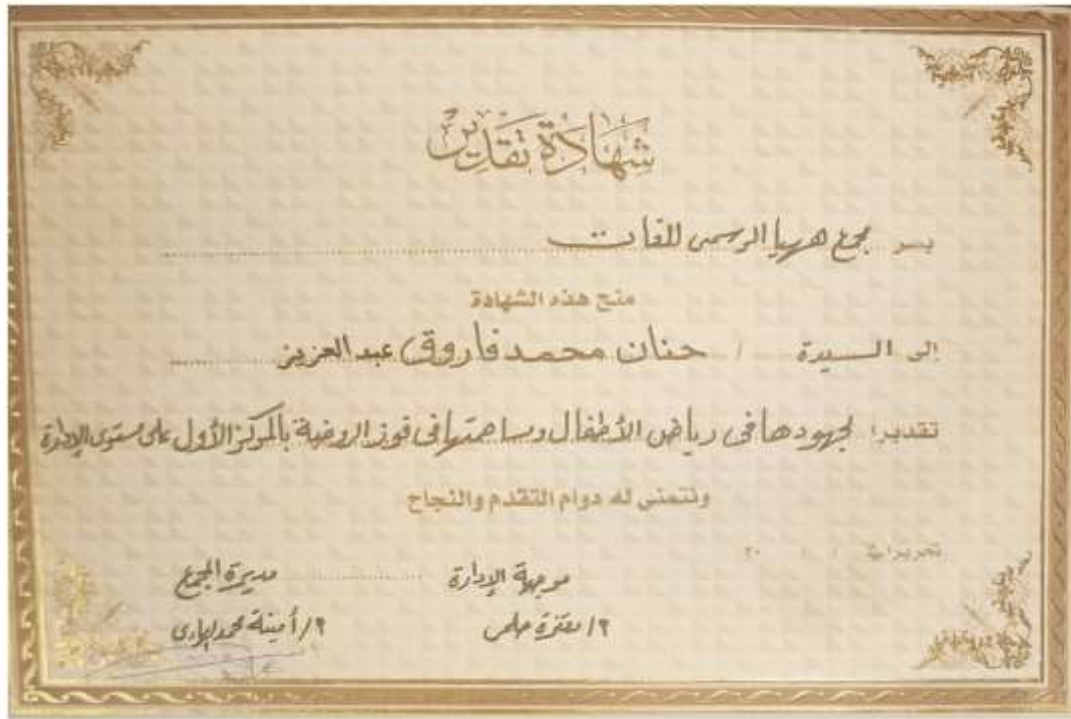 شهادة تقدير
يسر مجمع ههيا الرسمى للغات
منح هذه الشهادة
إلى السيدة / حنان محمد فاروق عبد العزيز
تقديرا لجهودها فى رياض الأطفال ومساهمتها فى فوز الروضة بالمركز الأول على مستوى الإدارة
ونتمنى له دوام التقدم والنجاح
تحريرا فى / / ٢٠
موجهة الإدارة مديرة المجمع
٢/ حلمى ٢/ أمينة محمد